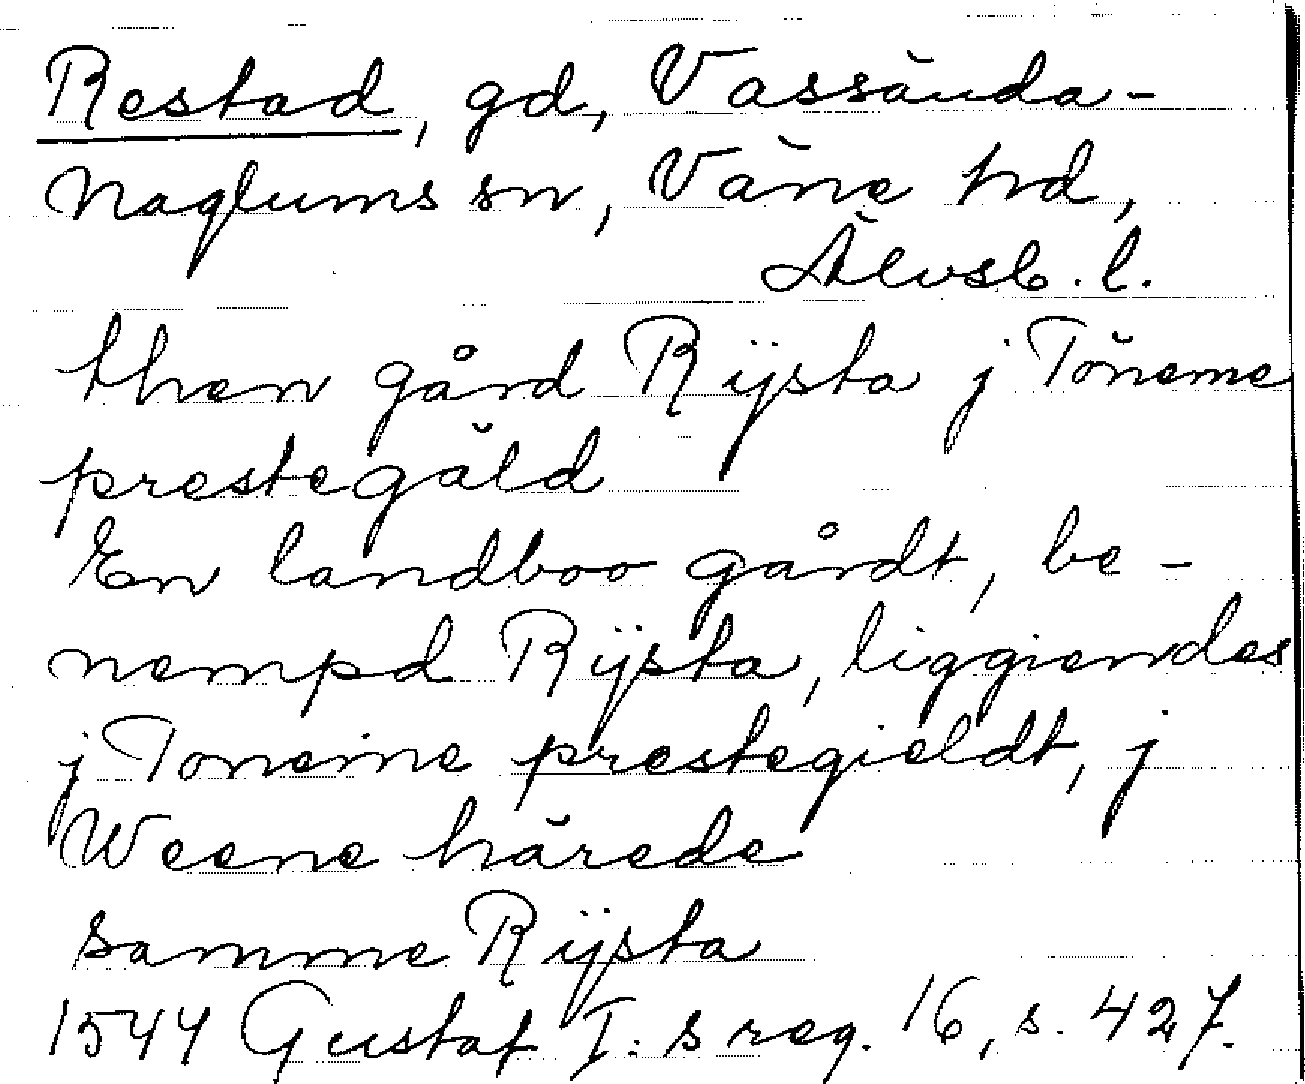 Restad, gd, Vassända-
Naglums sn, Väne hd,
Älvsb. l.
then gård Rÿsta j Töneme
prestegäld
En landboo gårdt, be-
nempd Rÿsta, liggiendes
j Toneme prestegieldt, j
Weene härede
samme Rÿsta
1544 Gustaf I:s reg. 16, s. 427.